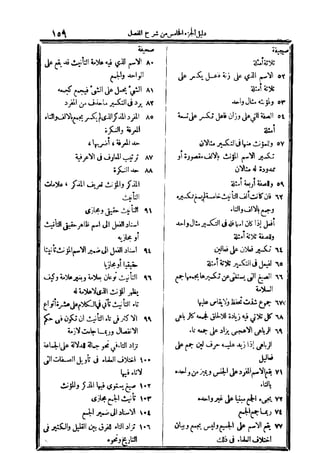 دليل الجزء الخامس من شرح المفصل ١٥٩
صحيفة
ثلاثة أمثلة
٥٢ الاسم الذي على زنة فاعل يكسر على
ثلاثة أمثلة
٥٣ ومؤنثه مثال واحد
٥٤ الصفة التي على وزان فاعل تكسر على تسعة
أمثلة
٥٧ وللمؤنث منها في التكسير مثالان
تكسير الاسم المؤنث بالالف مقصورة أو
ممدودة له مثالان
٥٩ وللصفة أربعة أمثلة
٦٢ فان كانت ألف التأنيث خامسة لم يجز تكسيره
وجمع بالالف والتاء
أفعل إذا كان اسما في التكسير مثال واحد
وللصفة ثلاثة أمثلة
٦٤ تكسير فعلان على فعالين
٦٥ لفيعل في التكسير ثلاثة أمثلة
٦٦ الصيغ التي يستغنى عن تكسيرها بجمعها جمع
السلامة
٦٧ جموع شذت تحفظ ولا يقاس عليها
٦٨ كل ثلاثي فيه زيادة للالحاق جمعه كالرباعي
٦٩ الرباعي الاعجمي يزاد على جمعه تاء
الرباعي إذا زيد عليه حرف لين جمع على
فعاليل
٧١ يقع الاسم المفرد على الجنس ويميز من واحده
بالتاء
٧٣ يجيء الجمع مبنيا على غير واحده
٧٤ ربما جمع الجمع
٧٧ يقع الاسم على الجميع وليس بجمع وبيان
اختلاف العلماء في ذلك
صحيفة
٨٠ الاسم الذي فيه علامة التأنيث قد يقع على
الواحد والجمع
٨١ الشيء يحمل على الشيء فيجمع كجمعه
٨٢ يرد في التكسير ما حذف من المفرد
٨٥ المفرد المذكر الذي لم يكسر يجمع بالالف والتاء
المعرفة والنكرة
حد المعرفة ، أضربها ،
٨٧ ترتيب المعارف في الاعرفية
٨٨ حد النكرة
المذكر والمؤنث تعريف المذكر ، علامات
التأنيث
٩١ التأنيث حقيقي ومجازي
اسناد الفعل الى اسم ظاهر حقيقي التأنيث
أو مجازيه
٩٤ اسناد الفعل الى ضمير الاسم المؤنث تأنيثا
حقيقيا أو مجازيا
٩٦ التأنيث نوعان بعلامة وبدون علامة وكيف
يظهر المؤنث الذي لا علامة له
تاء التأنيث تأتي في الكلام على عشرة أنواع
٩٩ الاكثر في تاء التأنيث أن تكون في حكم
الانفصال وربما جاءت لازمة
تزاد التاء في نحو جمالة للدلالة على الجماعة
١٠٠ اختلاف العلماء في تأويل الصفات التي
لا تاء فيها
١٠٢ صيغ يستوي فيها المذكر والمؤنث
١٠٣ تأنيث الجمع مجازي
١٠٤ الاسناد الى ضمير الجمع
١٠٦ تزاد التاء للفرق بين القليل والكثير في
التاريخ ونحوه